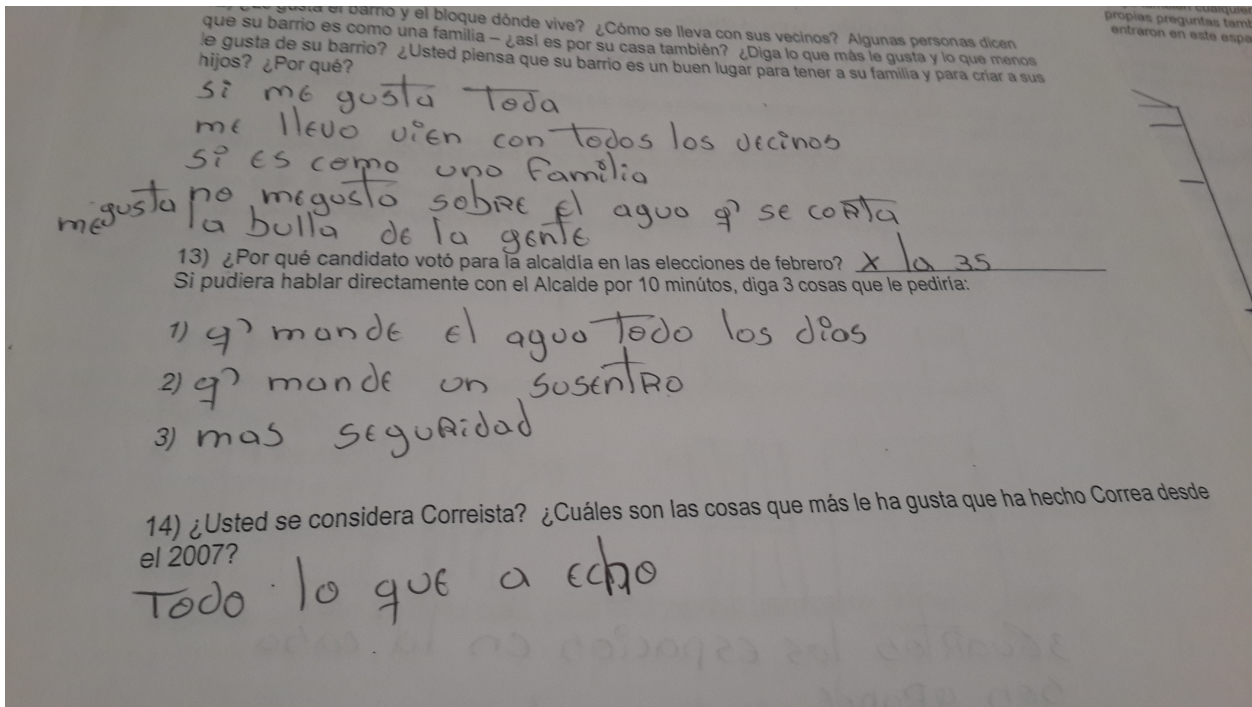 gusta el barrio y el bloque dónde vive? ¿Cómo se lleva con sus vecinos? Algunas personas dicen
que su barrio es como una familia – ¿así es por su casa también? ¿Diga lo que más le gusta y lo que menos
le gusta de su barrio? ¿Usted piensa que su barrio es un buen lugar para tener a su familia y para criar a sus
hijos? ¿Por qué?
cualquier
propias preguntas tamb
entraron en este espa
si me gusta Toda
me llevo vien con todos los vecinos
si es como una familia
me gusta no me gusta sobre el agua q' se corta
la bulla de la gente
13) ¿Por qué candidato votó para la alcaldía en las elecciones de febrero? x la 35
Si pudiera hablar directamente con el Alcalde por 10 minútos, diga 3 cosas que le pediría:
1) q' mande el agua Todo los dias
2) q' mande un susentro
3) mas seguridad
14) ¿Usted se considera Correista? ¿Cuáles son las cosas que más le ha gusta que ha hecho Correa desde
el 2007?
Todo lo que a echo